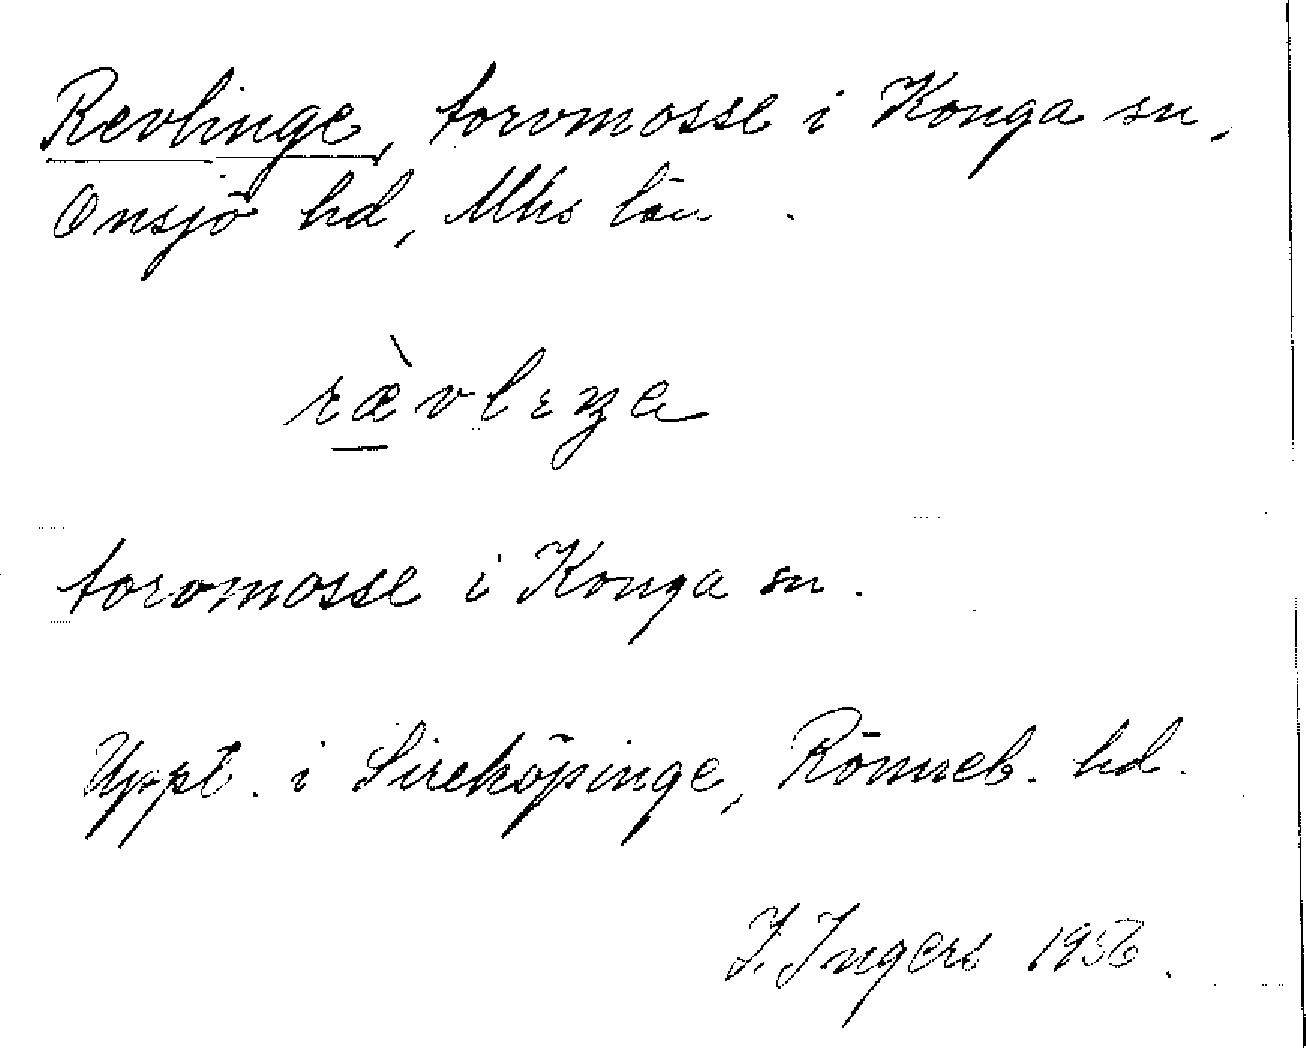 Revlinge, torvmosse i Konga sn,
Onsjö hd, Mhs län.
rævlɩŋa
torvmosse i Konga sn.
Uppt. i Sireköpinge, Rönneb. hd.
I. Ingers 1956.